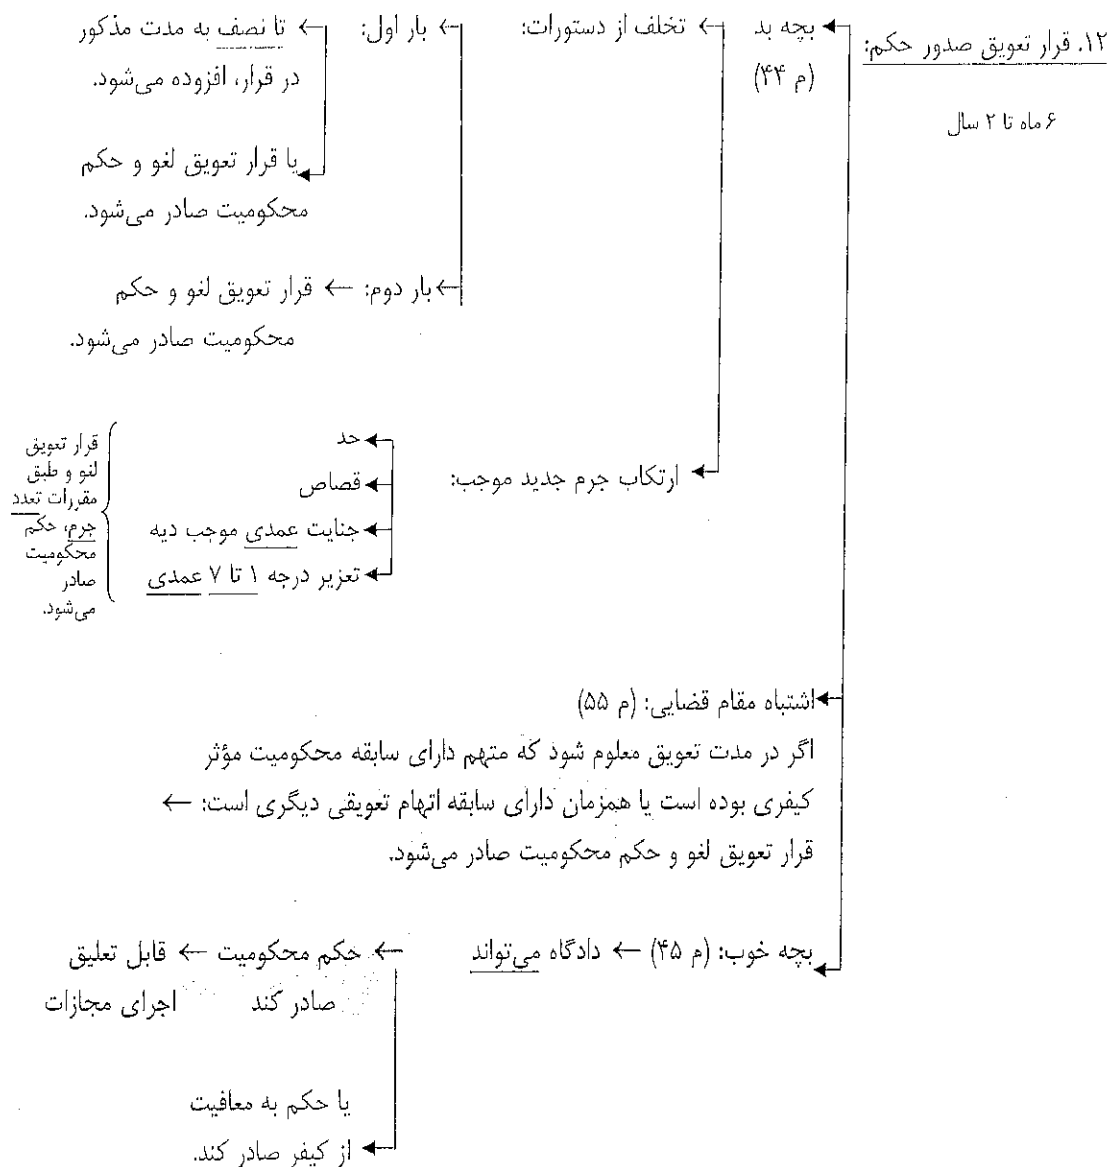 ۱۲. قرار تعویق صدور حکم:
۶ ماه تا ۲ سال
بچه بد
(م ۴۴)
تخلف از دستورات:
بار اول:
تا نصف به مدت مذکور
در قرار، افزوده می‌شود.
یا قرار تعویق لغو و حکم
محکومیت صادر می‌شود.
بار دوم: ← قرار تعویق لغو و حکم
محکومیت صادر می‌شود.
ارتکاب جرم جدید موجب:
حد
قصاص
جنایت عمدی موجب دیه
تعزیر درجه ۱ تا ۷ عمدی
قرار تعویق
لغو و طبق
مقررات تعدد
جرم، حکم
محکومیت
صادر
می‌شود.
اشتباه مقام قضایی: (م ۵۵)
اگر در مدت تعویق معلوم شود که متهم دارای سابقه محکومیت مؤثر
کیفری بوده است یا همزمان دارای سابقه اتهام تعویقی دیگری است: ←
قرار تعویق لغو و حکم محکومیت صادر می‌شود.
بچه خوب: (م ۴۵) ← دادگاه می‌تواند
حکم محکومیت ← قابل تعلیق
صادر کند اجرای مجازات
یا حکم به معافیت
از کیفر صادر کند.